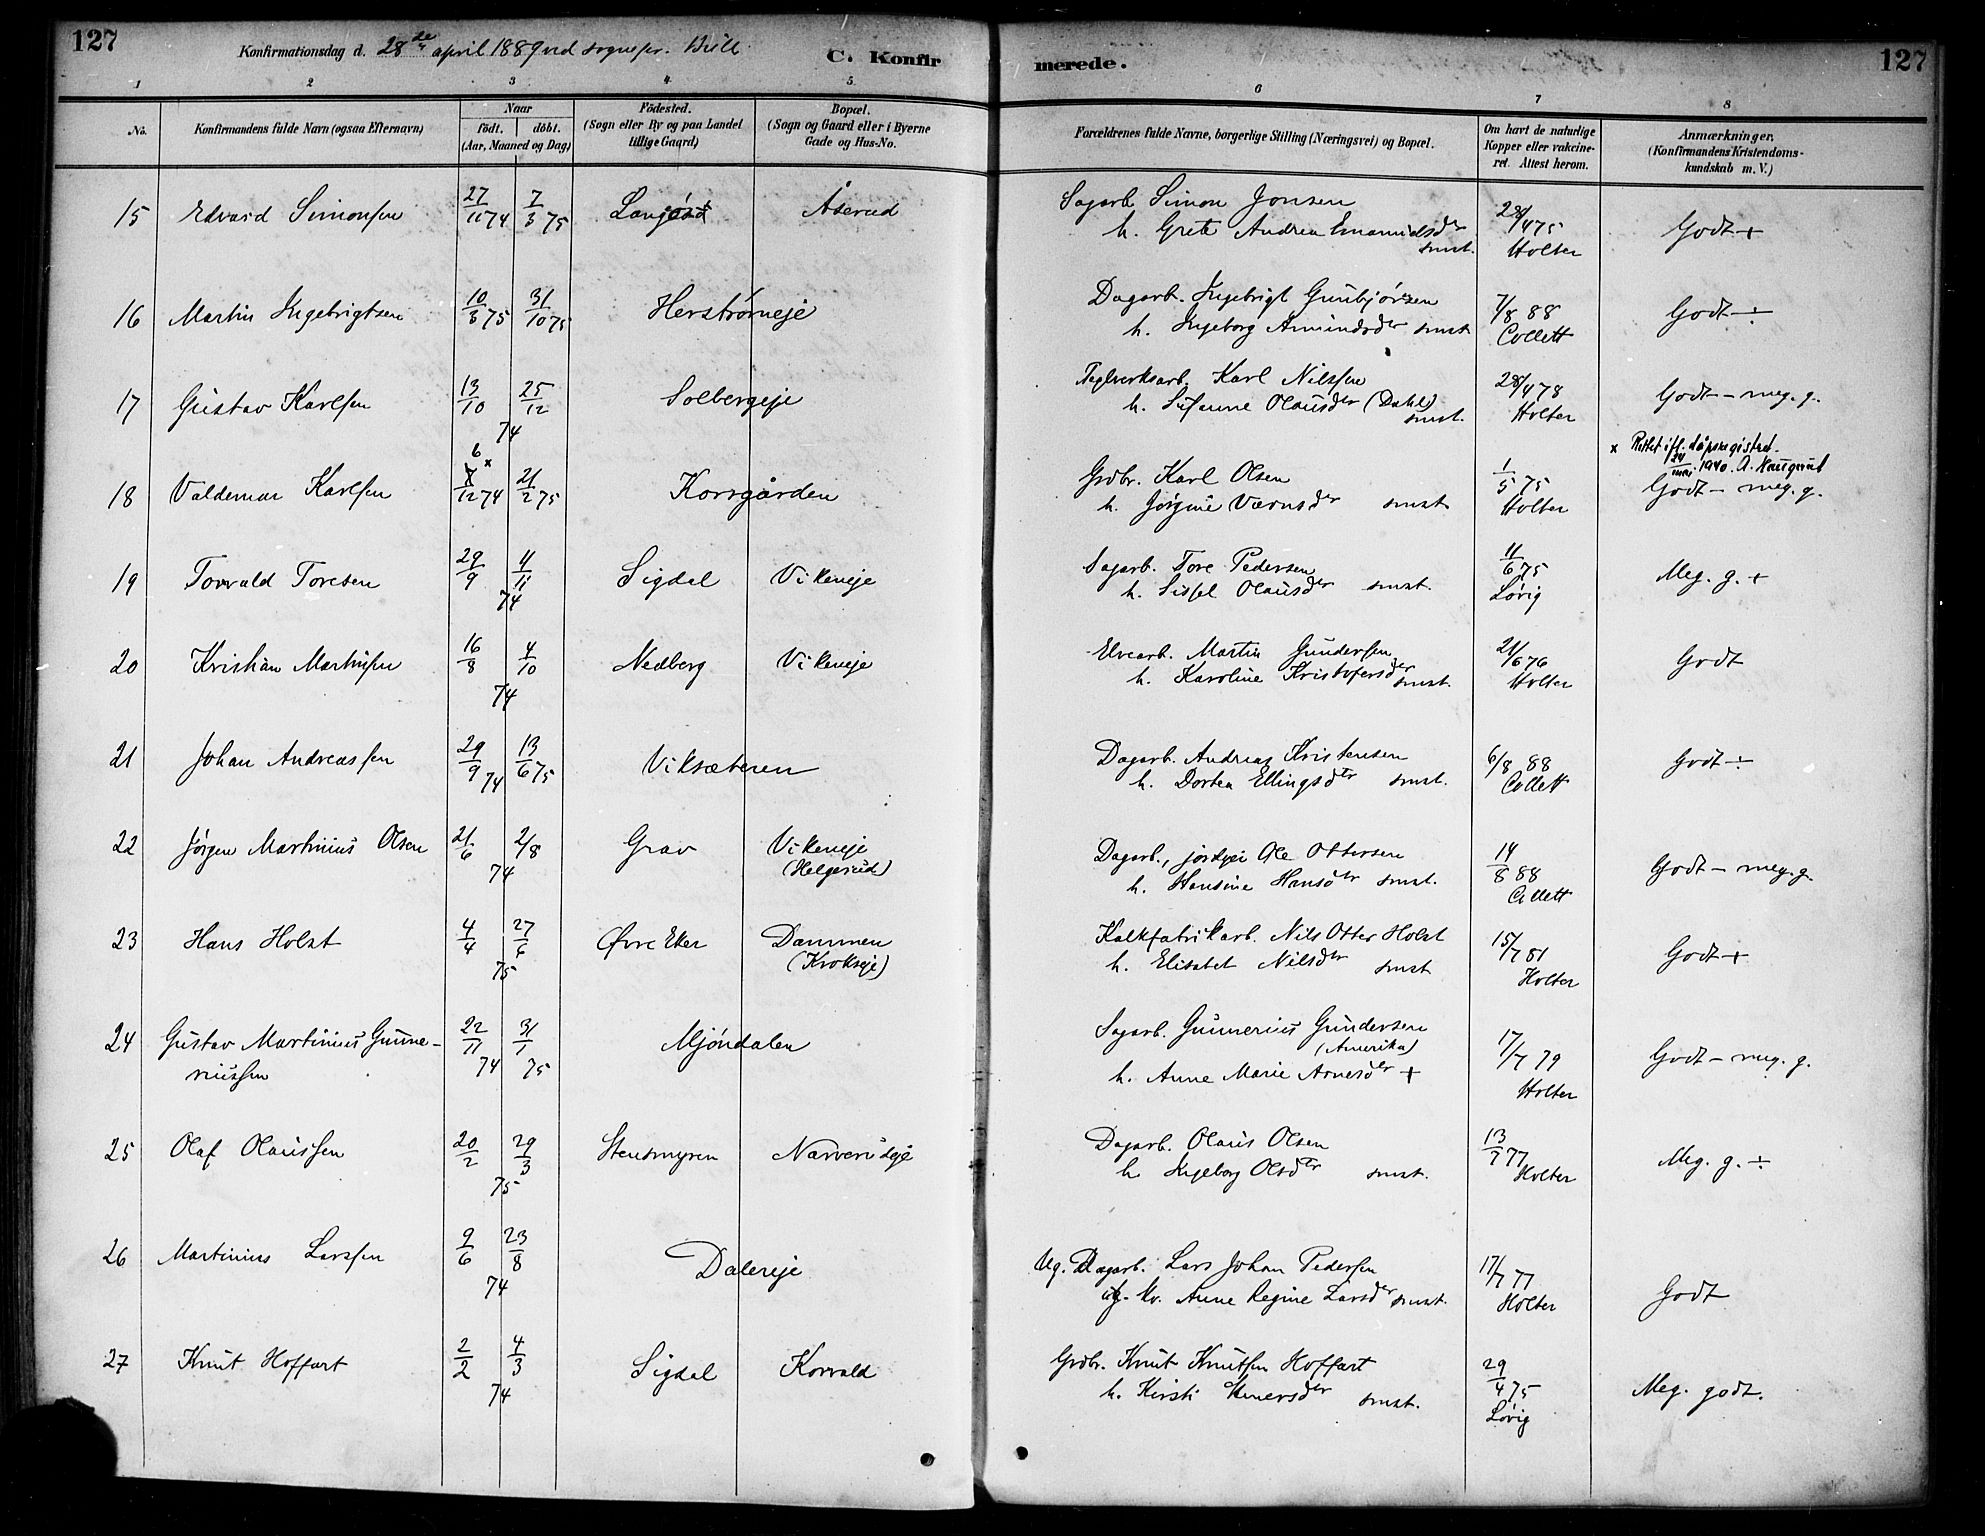 127
Konfirmationsdag d. 28de april 1889 ved sognepr.
C. Konfir
merede.
127
1 2 3 4 5 6 7 8
No.
Konfirmandens fulde Navn (ogsaa Efternavn)
Naar
födt. döbt.
(Aar, Maaned og Dag)
Födested.
(Sogn eller By og paa Landet
tillige Gaard)
Bopæl.
(Sogn og Gaard eller i Byerne
Gade og Hus-No.
Forældrenes fulde Navne, borgerlige Stilling (Næringsvei) og Bopæl.
Om havt de naturlige
Kopper eller vakcine-
ret. Attest herom.
Anmærkninger.
(Konfirmandens Kristendoms-
kundskab m. V.)
15 Edvard Simonsen 27/11 74 7/3 75 Åserud
Sagarb. Simon Jonsen
h. Grete Andrea Emanuelsder
smst.
28/4 75
Holter
Godt +
16 Martin Ingebrigtsen 10/8 75 31/10 75 Herstrømeje
Dagarb. Ingebrigt Gunbjørsen
h. Ingeborg Amundsder smst.
7/8 88
Collett
Godt ÷
17 Gustav Karlsen 13/10 25/12 74 Solbergeje
Teglverksarb. Karl Nilssen
h. Susanne Olausder (Dahl)
smst.
28/4 78
Holter
Godt - meg. g.
x Rettet ifl. dåpsregistret
1940.
18 Valdemar Karlsen 6 x /12 74 21/2 75 Korsgården
Grdbr. Karl Olsen
h. Jørgine Værnsder smst.
1/5 75
Holter
Godt - meg. g.
19 Torvald Toresen 29/9 4/11 74 Sigdal Vikeneje
Sagarb. Tore Pedersen
h. Sissel Olausder smst.
11/6 75
Lövig
Meg. g. +
20 Kristian Martinsen 16/8 4/10 74 Nedberg Vikeneje
Elvearb. Martin Gundersen
h. Karoline Kristofersder smst.
21/6 76
Holter
Godt
21 Johan Andreassen 29/9 74 13/6 75 Viksæteren
Dagarb. Andreas Kristensen
h. Dortea Ellingsder smst.
6/8 88
Collett
Godt ÷
22 Jörgen Martinius Olsen 21/6 2/8 74 Grav Vikeneje
(Helgerud)
Dagarb., Ole Ottersen
h. Hansine Hansder smst.
14/8 88
Collett
Godt - meg. g.
23 Hans Holst 4/4 27/6 75 Øvre Eker Dammen
(Krokseje)
Kalkfabrikarb. Nils Otter Holst
h. Elisabet Nilsder smst.
15/7 81
Holter
Godt +
24 Gustav Martinius Gunne-
riussen 22/11 74 31/1 75 Mjöndalen
Sagarb. Gunnerius Gundersen
(Amerika)
h. Anne Marie Arnesder +
17/7 79
Holter
Godt - meg. g.
25 Olaf Olaussen 20/2 29/3 75 Stensmyren Narverudeje
Dagarb. Olaus Olsen
h. Ingeborg Olsder smst.
13/7 77
Holter
Meg. g. ÷
26 Martinius Larssen 9/6 23/8 74 Dalereje
Ug. Dagarb. Lars Johan Pedersen
ug. kv. Anne Regine Larsder smst.
17/7 77
Holter
Godt
27 Knut Hoffart 2/2 4/3 74 Sigdal Korvald
Grdbr. Knut Knutsen Hoffart
h. Kirsti smst.
29/4 75
Lövig
Meg. godt.